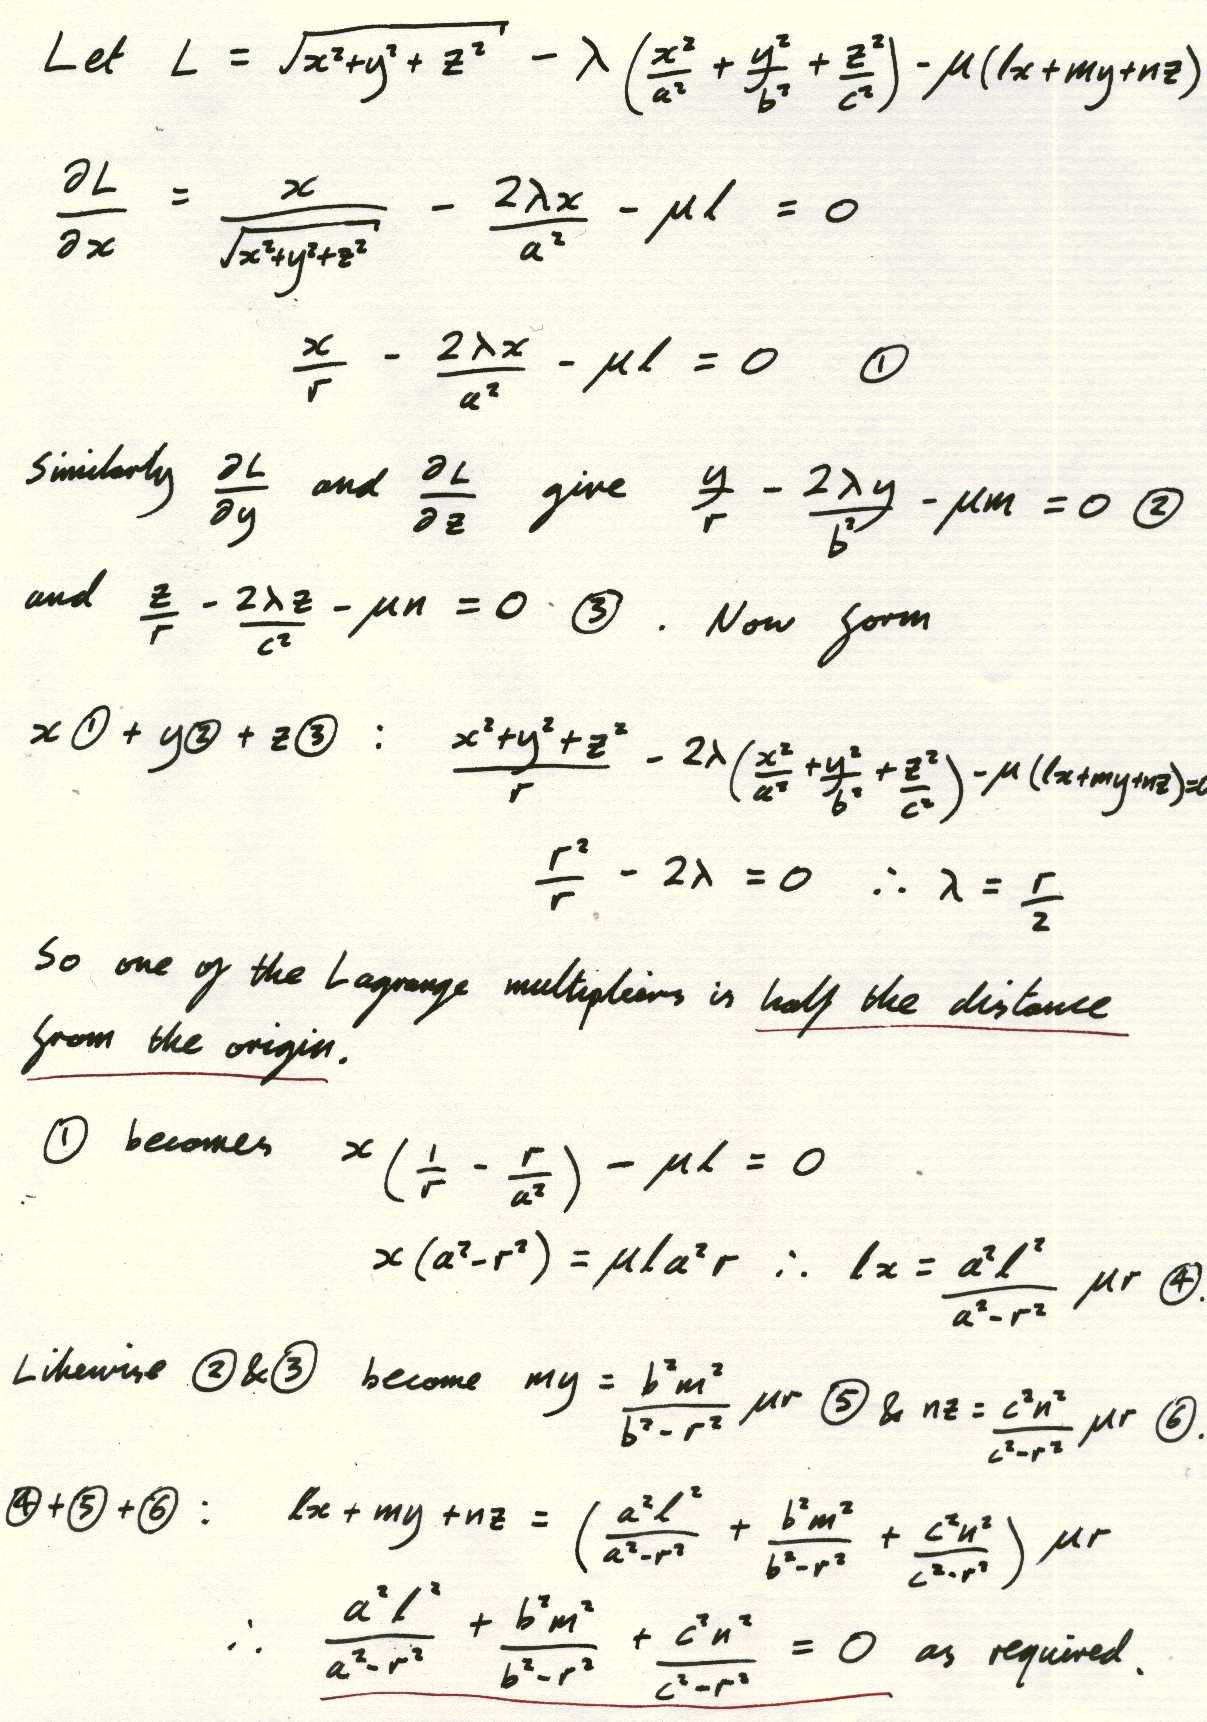 Let L = √(x²+y²+z²) - λ(x²/a² + y²/b² + z²/c²) - μ(lx+my+nz)
∂L/∂x = x/√(x²+y²+z²) - 2λx/a² - μl = 0
x/r - 2λx/a² - μl = 0 ①
Similarly ∂L/∂y and ∂L/∂z give y/r - 2λy/b² - μm = 0 ②
and z/r - 2λz/c² - μn = 0 ③. Now form
x① + y② + z③ : (x²+y²+z²)/r - 2λ(x²/a² + y²/b² + z²/c²) - μ(lx+my+nz)=0
r²/r - 2λ = 0 ∴ λ = r/2
So one of the Lagrange multipliers is half the distance
from the origin.
① becomes x(1/r - r/a²) - μl = 0
x(a²-r²) = μla²r ∴ lx = a²l²/(a²-r²) μr ④.
Likewise ②&③ become my = b²m²/(b²-r²) μr ⑤ & nz = c²n²/(c²-r²) μr ⑥.
④+⑤+⑥ : lx + my + nz = (a²l²/(a²-r²) + b²m²/(b²-r²) + c²n²/(c²-r²)) μr
∴ a²l²/(a²-r²) + b²m²/(b²-r²) + c²n²/(c²-r²) = 0 as required.